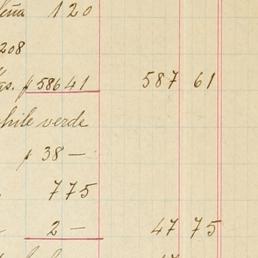 leña 1 20
208
as. $ 586 41 587 61
chile verde
$ 38 —
7 75
2 — 47 75